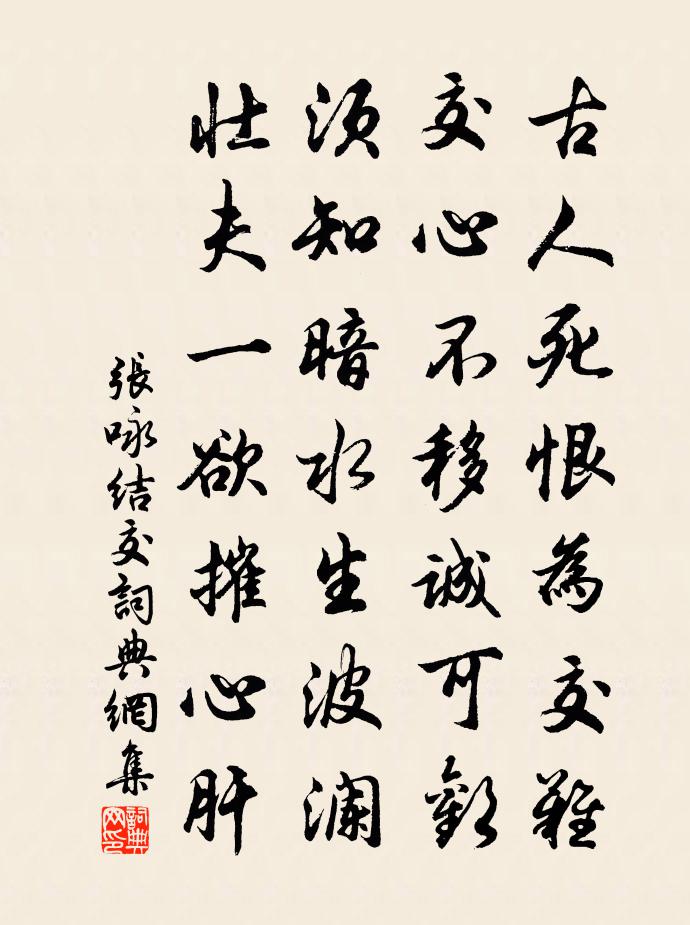 古人死恨為交難
交心不移誠可歡
須知暗水生波瀾
壯夫一欲摧心肝
張咏結交詞典網集
詞典網印